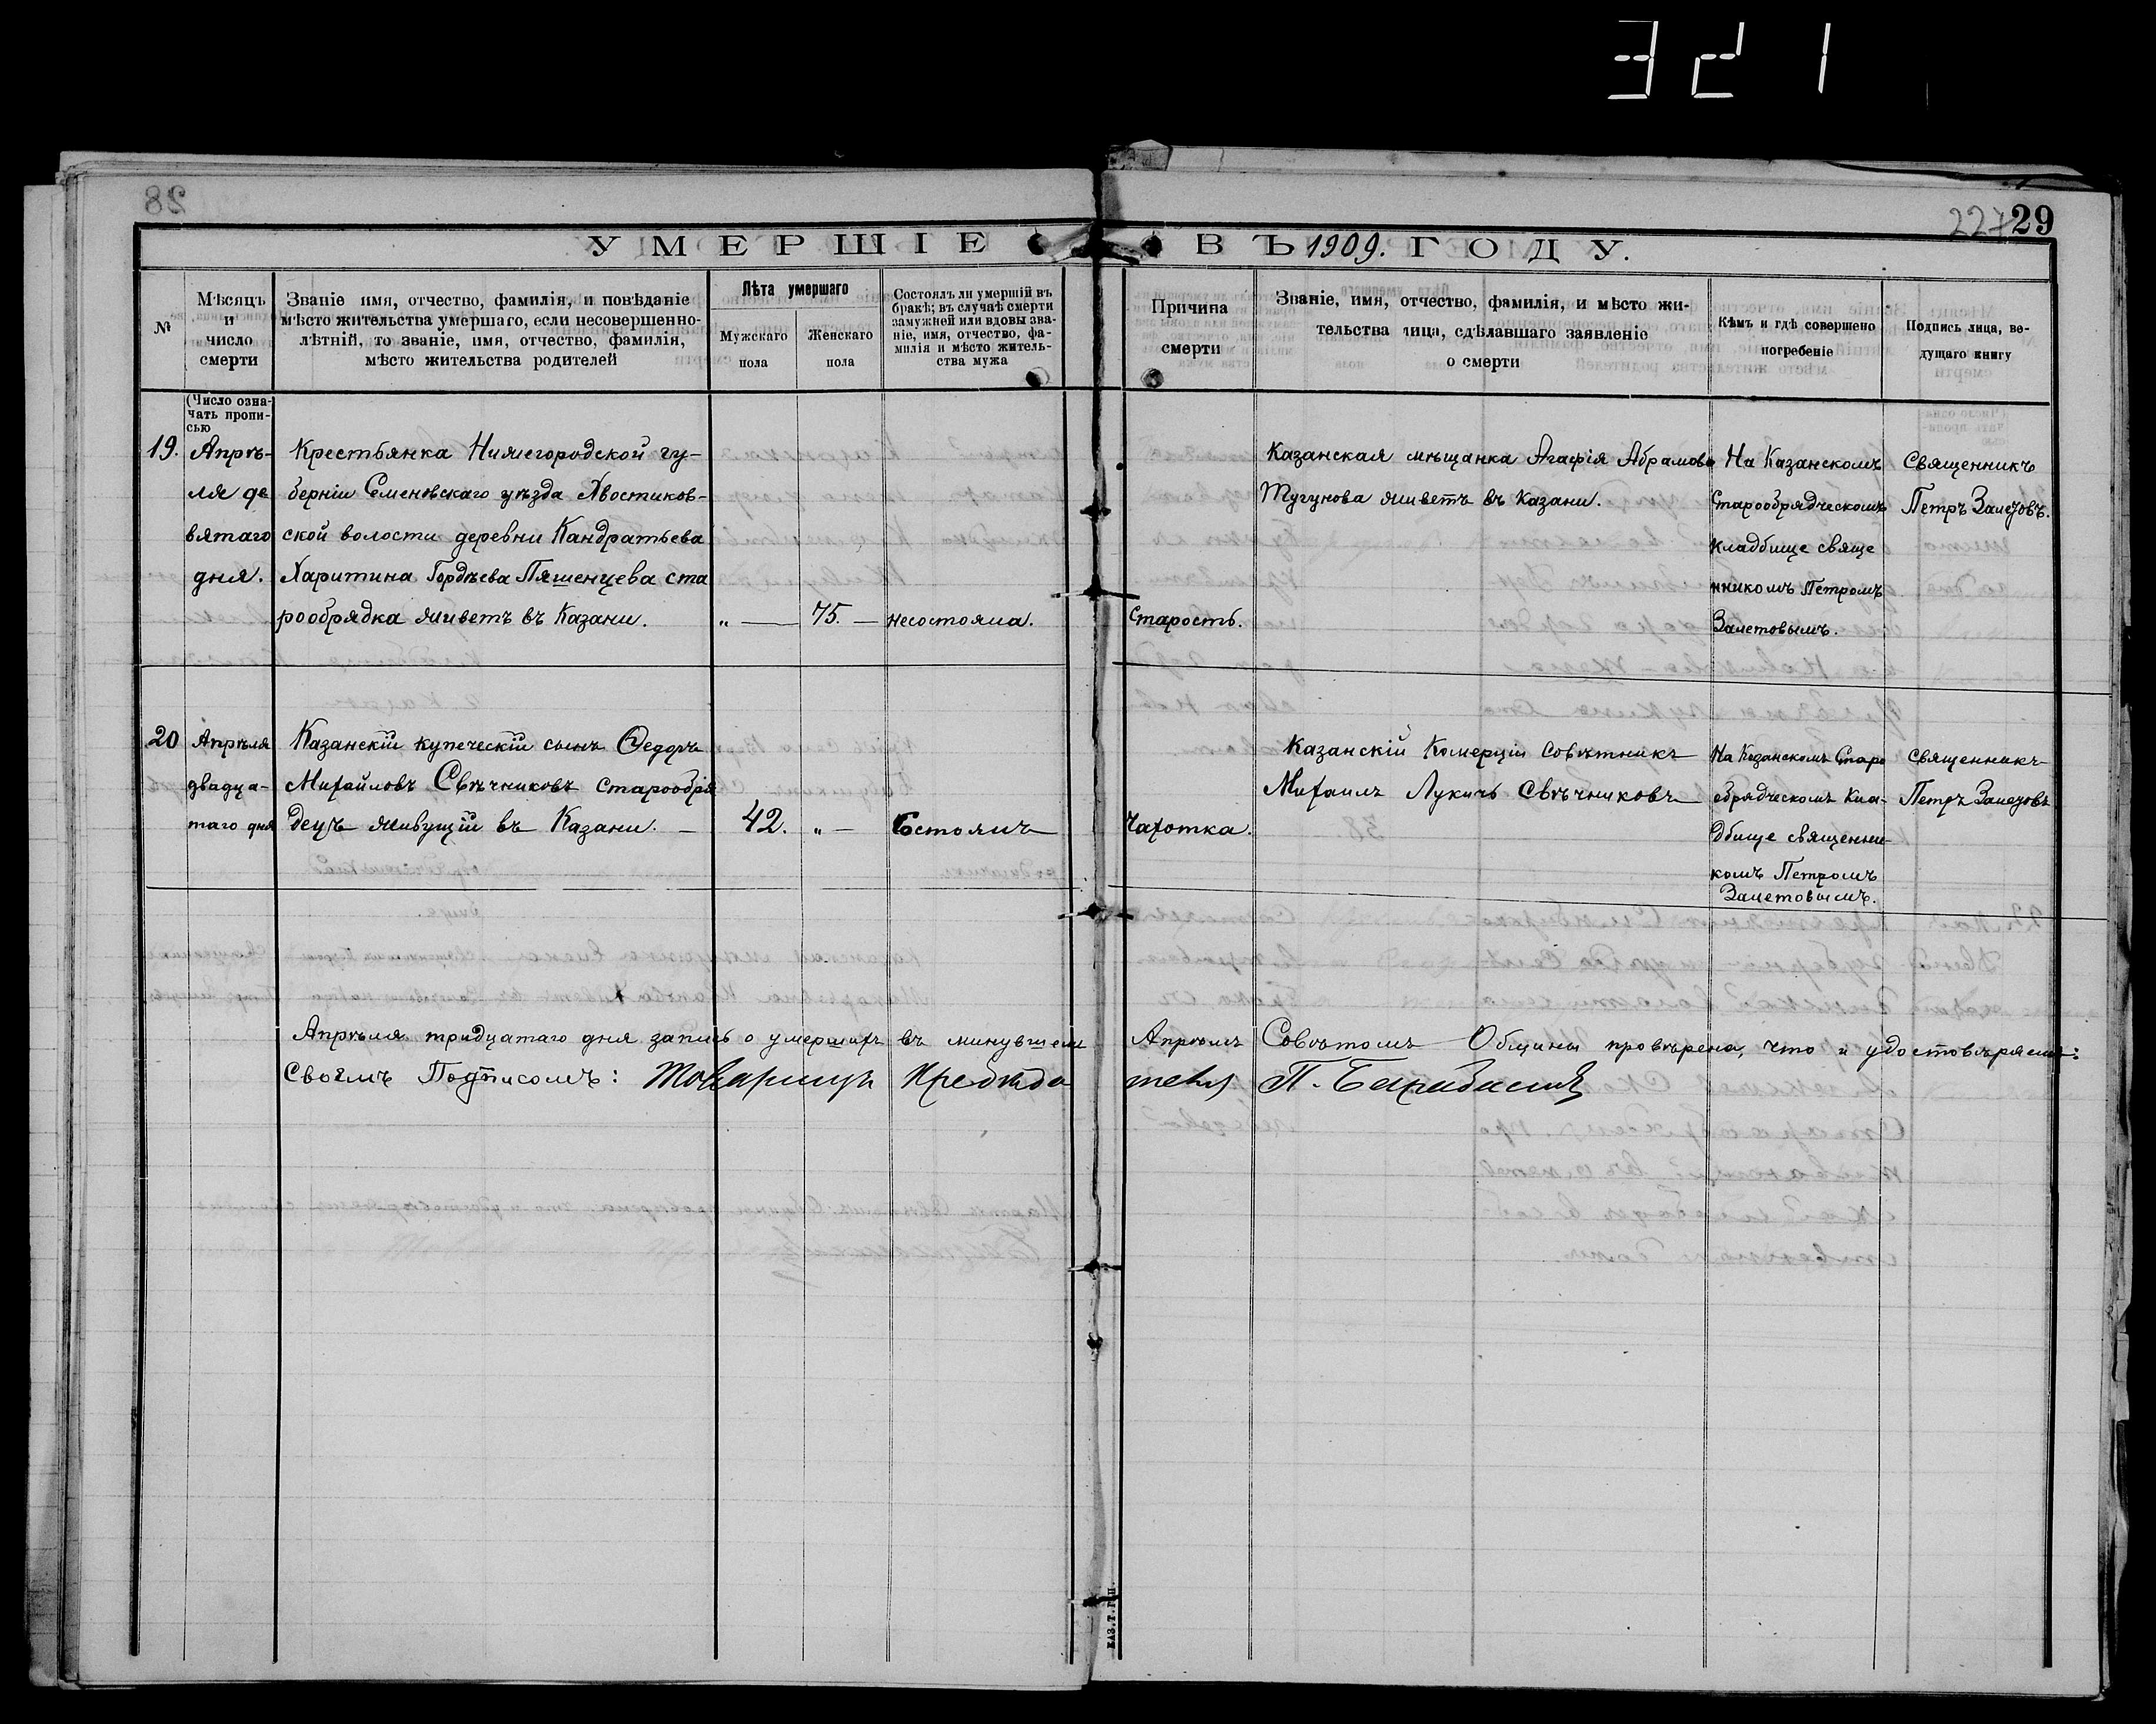 321
22729
УМЕРШІЕ ВЪ 1909. ГОДУ.
№
Мѣсяцъ и число смерти
Званіе имя, отчество, фамилія, и повѣданіе
мѣсто жительства умершаго, если несовершенно-
лѣтній, то званіе, имя, отчество, фамилія,
мѣсто жительства родителей
Лѣта умершаго
Мужскаго пола
Женскаго пола
Состоялъ ли умершій въ
бракѣ; въ случаѣ смерти
замужней или вдовы зва-
ніе, имя, отчество, фа-
милія и мѣсто житель-
ства мужа
Причина
смерти
Званіе, имя, отчество, фамилія, и мѣсто жи-
тельства лица, сдѣлавшаго заявленіе
о смерти
Кѣмъ и гдѣ совершено
погребеніе
Подпись лица, ве-
дущаго книгу
(Число озна-
чать пропи-
сью
19.
Апрѣ-
ля де
вятаго
дня.
Крестьянка Нижегородской гу-
берніи Семеновскаго уѣзда Хвостиков-
ской волости деревни Кандратьева
Харитина Гордѣева Пяшенцева ста
рообрядка живетъ въ Казани.
„ —
75. —
несостояла.
Старость.
Казанская мѣщанка Агафія Абрамова
Тугунова живетъ въ Казани.
На Казанскомъ
Старообрядческомъ
кладбище свяще
нникомъ Петромъ
Залетовымъ.
Священникъ
Петръ Залетовъ.
20
Апрѣля
двадца-
таго дня
Казанскій купеческій сынъ Ѳедоръ
Михайловъ Свѣчниковъ старообря
децъ живущій въ Казани. —
42.
„ —
Состоялъ
Чахотка.
Казанскій Комерціи Совѣтникъ
Михаилъ Лукичъ Свѣчниковъ
На Казанскомъ Старо
обрядческомъ Кла-
дбище священни-
комъ Петромъ
Залетовымъ.
Священникъ
Петръ Залетовъ
Апрѣля тридцатаго дня запись о умершихъ въ минувшемъ Апрѣлѣ Совѣтомъ Общины провѣрена, что и удостовѣряемъ:
Своемъ Подписомъ: Товарищъ Предсѣда тель П.
КАЗ.Т.Г.П.